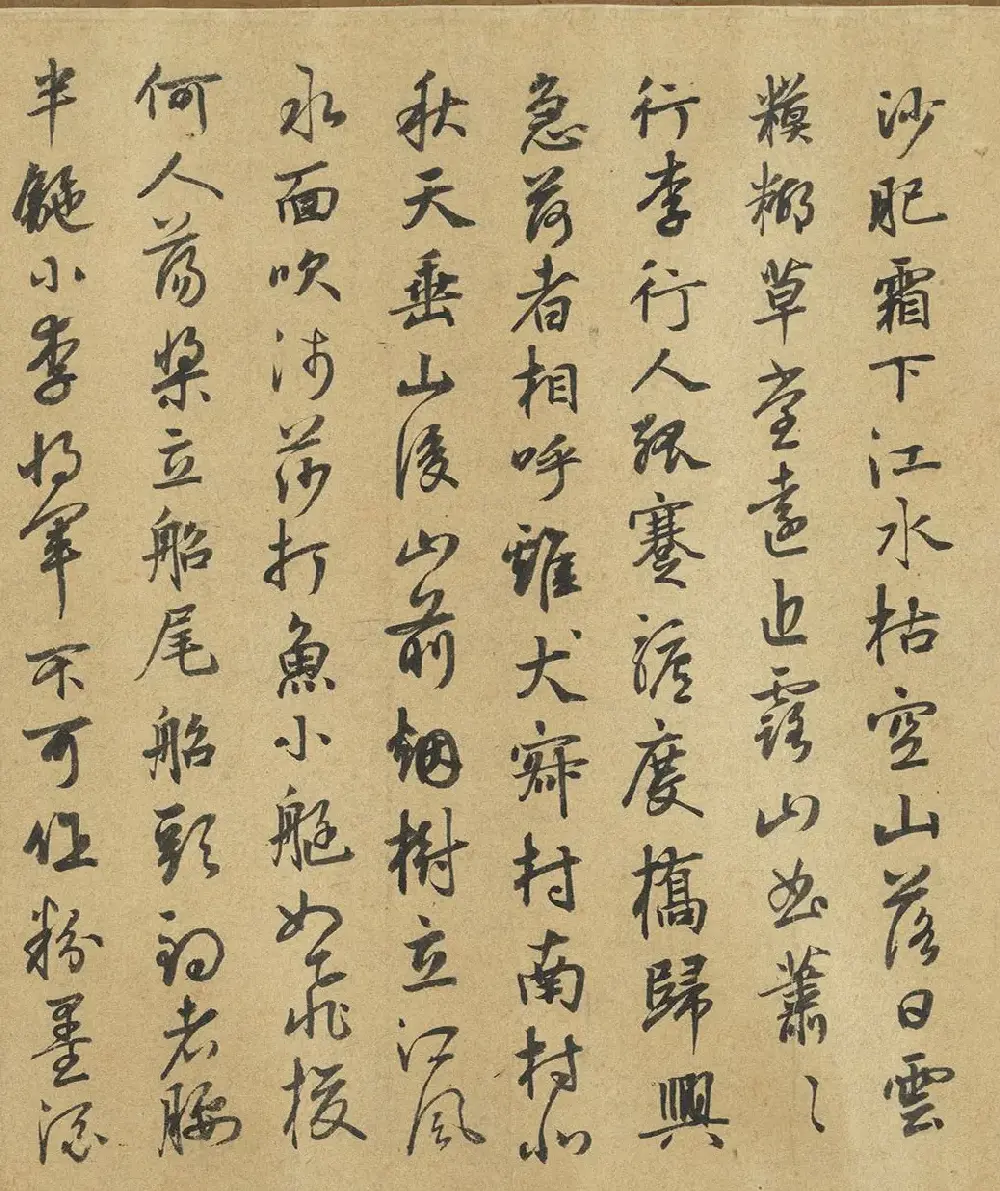 沙肥霜下江水枯空山落日雲
糢糊草堂遠近露山蕭〻
行李行人孤蹇驢度橋歸興
急荷者相呼雞犬寂村南村北
秋天垂山後山前烟樹立江風
水面吹莎打魚小艇如飛梭
何人蕩槳立船尾船頭釣老腰
半小李將軍不可作粉墨